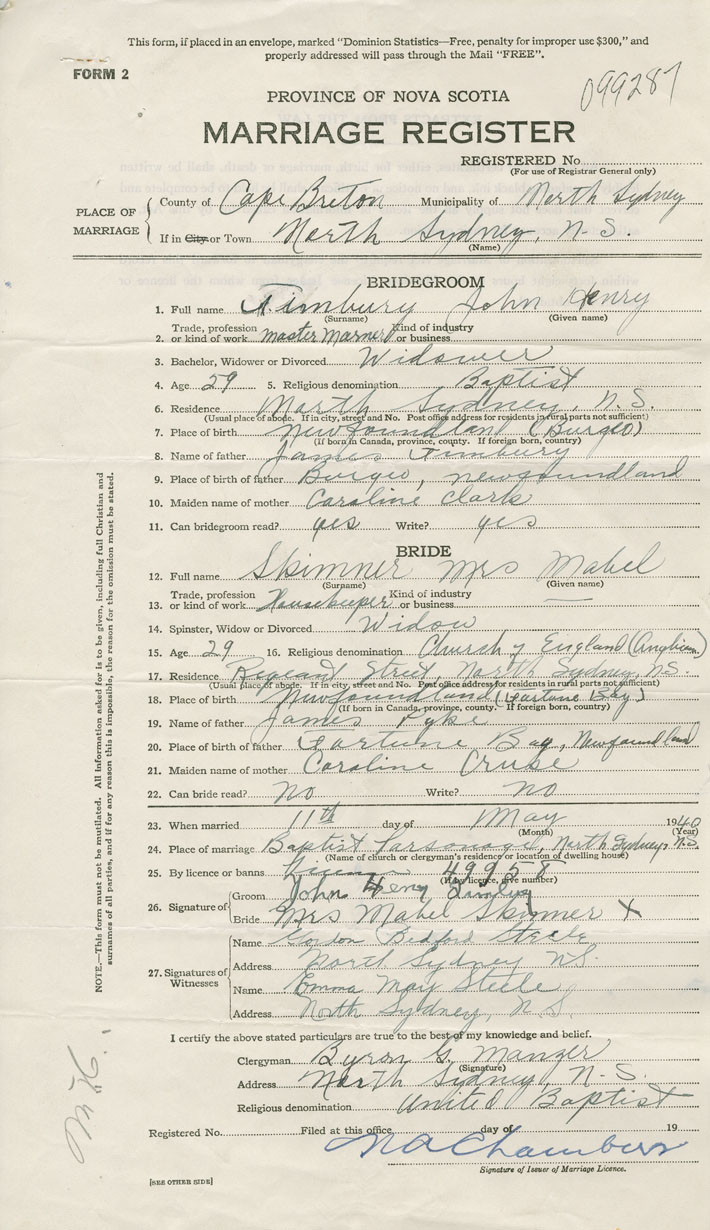 This form, if placed in an envelope, marked "Dominion Statistics—Free, penalty for improper use $300," and
properly addressed will pass through the Mail "FREE".
FORM 2
099287
PROVINCE OF NOVA SCOTIA
MARRIAGE REGISTER
REGISTERED No.
(For use of Registrar General only)
PLACE OF MARRIAGE
County of Cape Breton Municipality of North Sydney
If in City or Town North Sydney, N.S.
(Name)
BRIDEGROOM
1. Full name Timbury John Henry
(Surname) (Given name)
2. Trade, profession or kind of work master Marner Kind of industry or business
3. Bachelor, Widower or Divorced Widower
4. Age 29 5. Religious denomination Baptist
6. Residence North Sydney, N.S.
(Usual place of abode. If in city, street and No. Post office address for residents in rural parts not sufficient)
7. Place of birth Newfoundland (Burgeo)
(If born in Canada, province, county. If foreign born, country)
8. Name of father James Timbury
9. Place of birth of father Burgeo, newfoundland
10. Maiden name of mother Caroline Clark
11. Can bridegroom read? yes Write? yes
BRIDE
12. Full name Skinner Mrs Mabel
(Surname) (Given name)
13. Trade, profession or kind of work Housekeeper Kind of industry or business —
14. Spinster, Widow or Divorced Widow
15. Age 29 16. Religious denomination Church of England (Anglican)
17. Residence Regeant Street, North Sydney, N.S.
(Usual place of abode. If in city, street and No. Post office address for residents in rural parts not sufficient)
18. Place of birth Newfoundland (Fortune Bay)
(If born in Canada, province, county. If foreign born, country)
19. Name of father James Pyke
20. Place of birth of father Fortune Bay, Newfoundland
21. Maiden name of mother Caroline Cruse
22. Can bride read? No Write? no
23. When married 11th day of May 1940
(Month) (Year)
24. Place of marriage Baptist Parsonage, North Sydney, N.S.
(Name of church or clergyman's residence or location of dwelling house)
25. By licence or banns Licence 49958
(If by licence, give number)
26. Signature of
Groom John Henry Timbury
Bride Mrs Mabel Skinner X
27. Signatures of Witnesses
Name Gordon Bedford Steele
Address North Sydney N.S.
Name Emma May Steele
Address North Sydney, N.S.
I certify the above stated particulars are true to the best of my knowledge and belief.
Clergyman Byron G. Manzer
(Signature)
Address North Sydney, N.S.
Religious denomination United Baptist
Registered No. Filed at this office day of 19
Chambers
Signature of Issuer of Marriage Licence.
[SEE OTHER SIDE]
NOTE.—This form must not be mutilated. All information asked for is to be given, including full Christian and
surnames of all parties, and if for any reason this is impossible, the reason for the omission must be stated.